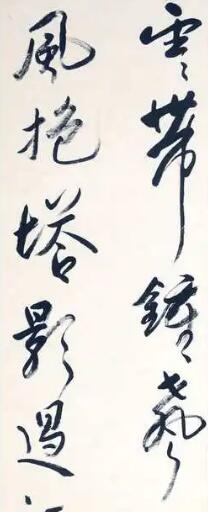 雲帶鐘聲
風塔影過